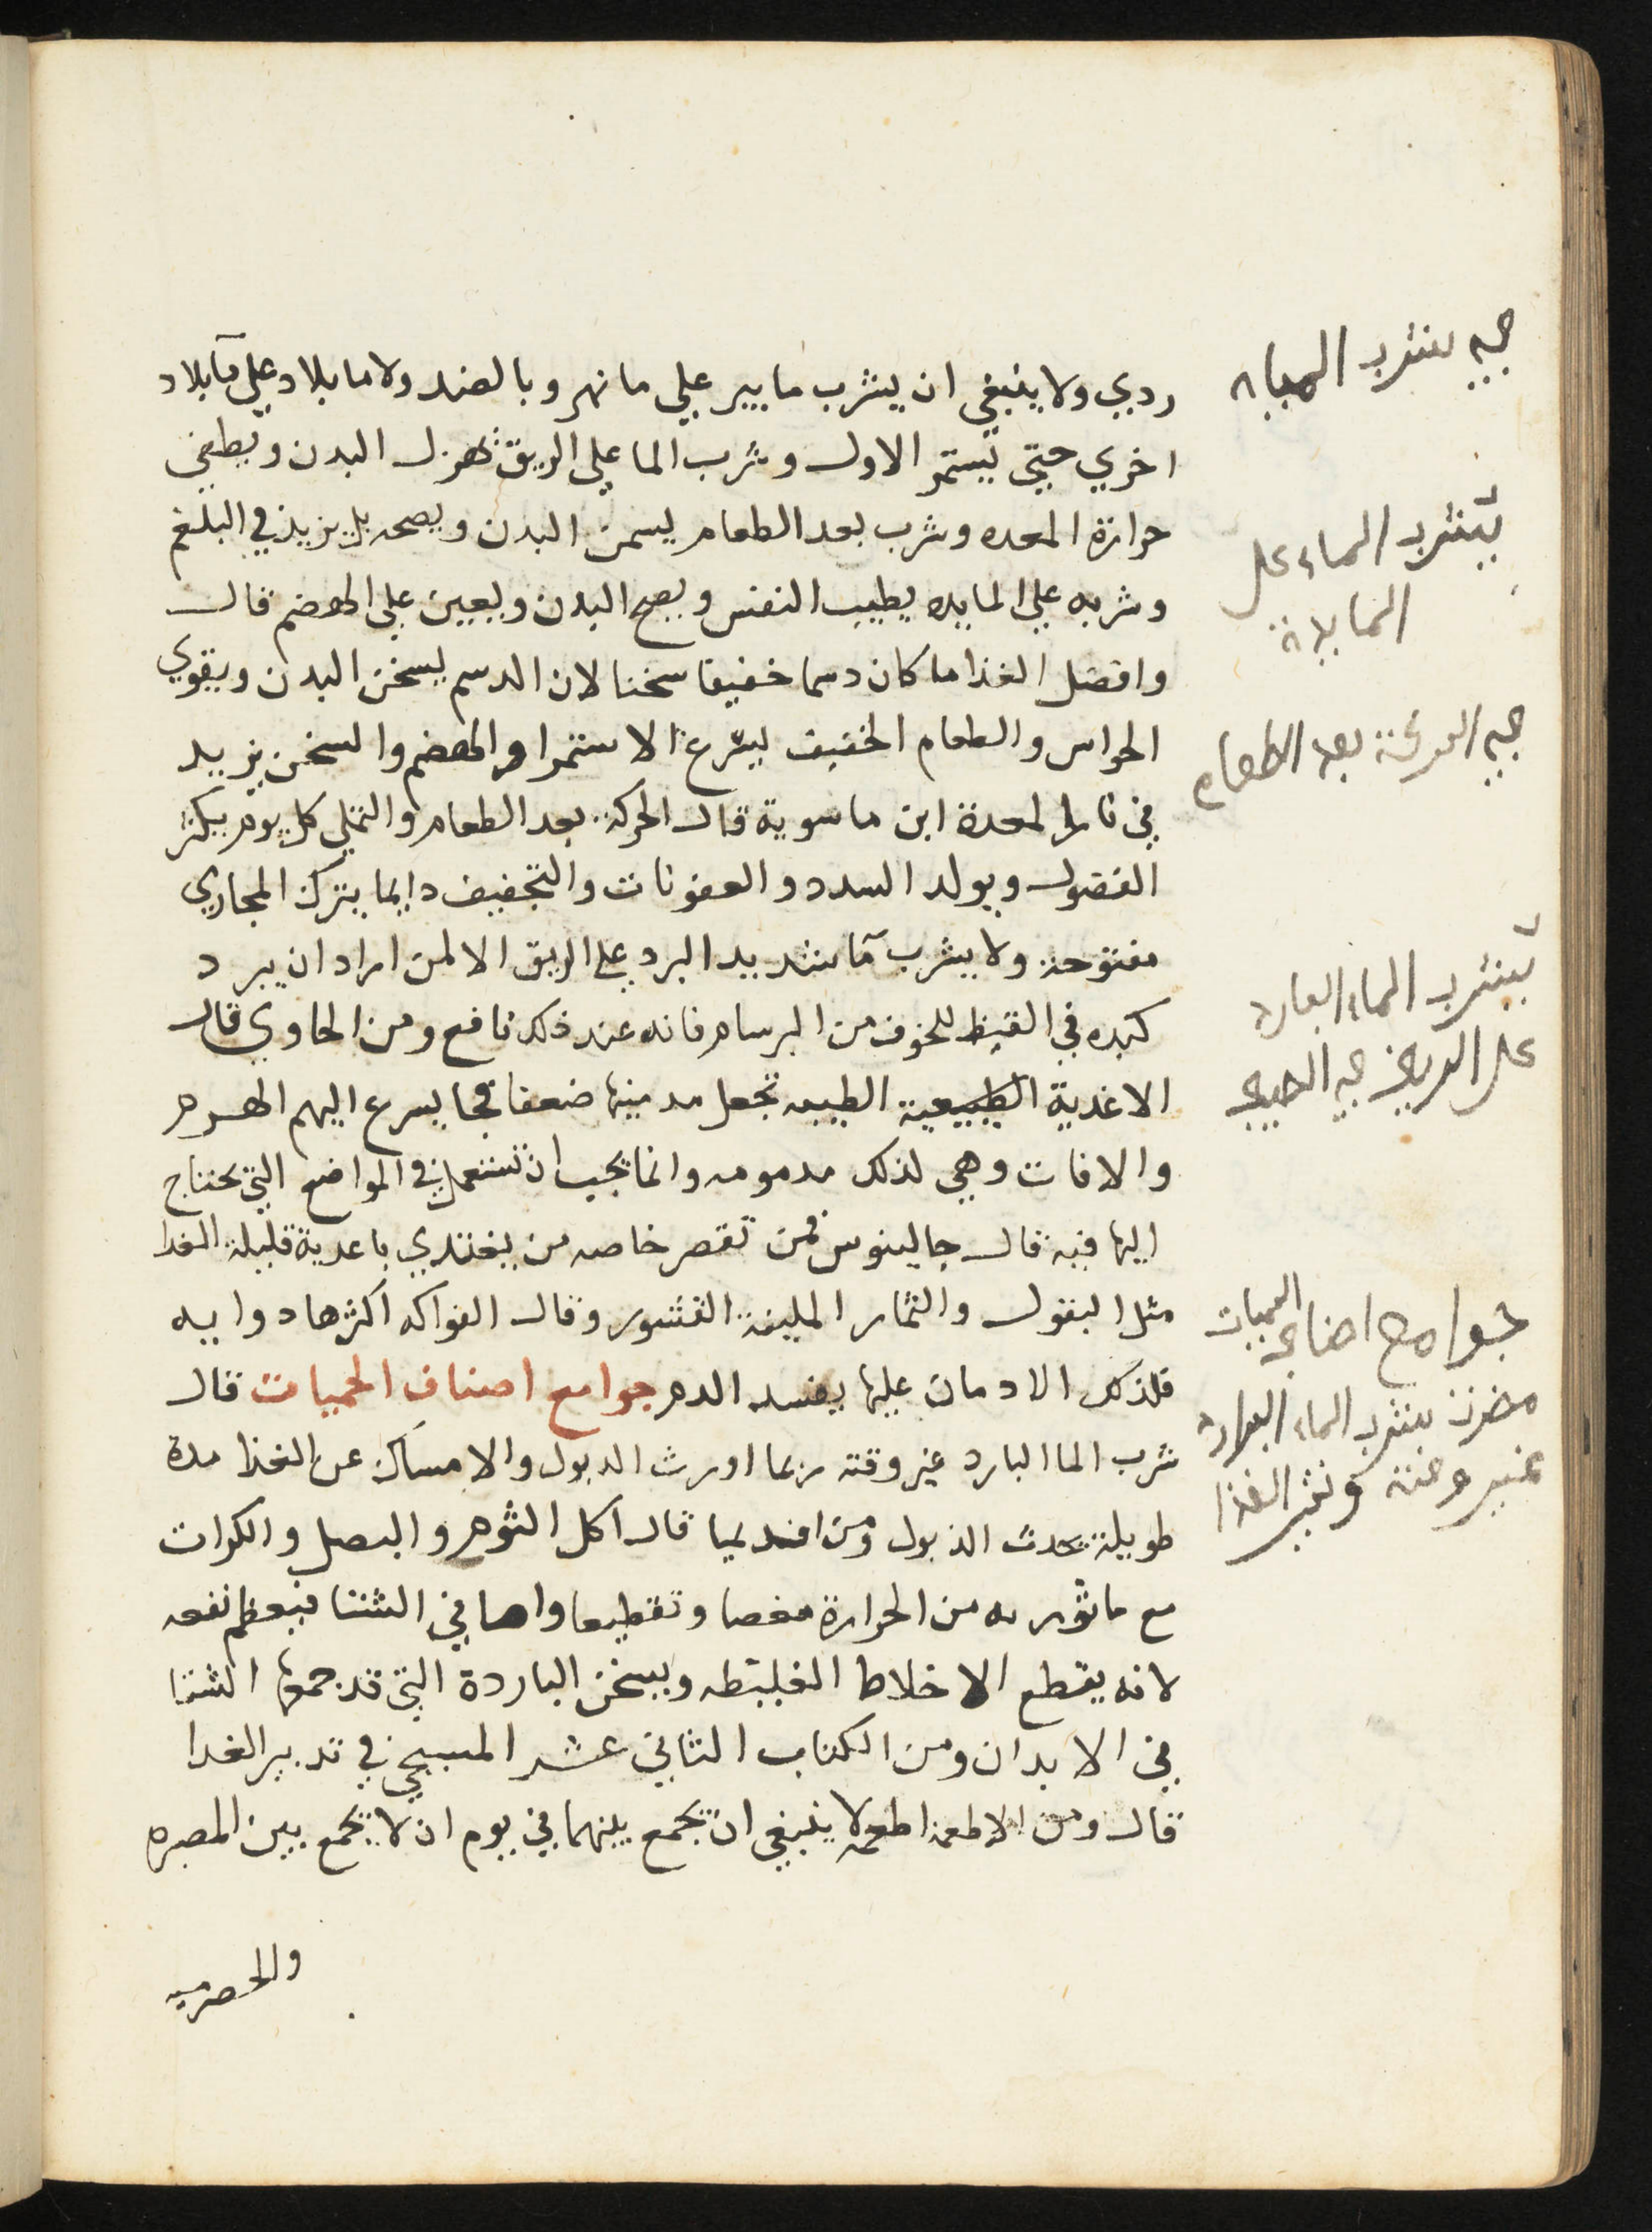 ردي ولا ينبغي ان يشرب ما بير علي ما نهر وبالضد ولا ما بلاد علي مآ بلاد
اخري حتي تيستمر الاول وشرب الما علي الريق يهزل البدن ويطفي
حرارة المعده وشرب بعد الطعام يسمن البدن ويصحه بل يزيد في البلغم
وشربه علي المايده يطيب النفس ويصح البدن ويعين علي الهضم قال
وافضل الغذا ما كان دسما خفيفا سخنا لان الدسم يسخن البدن ويقوي
الحواس والطعام الخفيف يسرع الاستمرا والهضم والسخن يزيد
في نار المعدة ابن ماسوية قال الحركة بعد الطعام والتملي كل يوم يكثر
الفضول ويولد السدد والعفونات والتجفيف دايما يترك المجاري
مفتوحة ولا يشرب مآ شديد البرد علي الريق الا لمن اراد ان يبرد
كبده في القيظ للخوف من البرسام فانه عند ذلك نافع ومن الحاوي قال
الاغدية الطبيعية الطيبه تجعل مدمنيها ضعفا فجا يسرع اليهم الهرم
والافات وهي لذلك مدمومه وانما يجب ان تستعمل في المواضع التي يحتاج
اليها فيه قال جالينوس فمن تقصر خاصه من يغتدي باغدية قليلة الغدا
مثل البقول والثمار الملينة القشور وقال الفواكه اكثرها دوايه
فلذلك الادمان عليها يفسد الدم جوامع اصناف الحميات قال
شرب الما البارد غير وقته ربما اورث الدبول والامساك عن الغذا مدة
طويلة يحدث الذبول ومن افنديميا قال اكل الثوم والبصل والكرات
مع ما تورىه من الحرارة مغصا وتقطيعا واما في الشتا فيعظم نفعه
لانه يقطع الاخلاط الغليظه ويسخن الباردة التي قد جمعها الشتا
في الابدان ومن الكتاب الثاني عشر المسيحي في تدبير الغدا
قال ومن الاطعمة اطعمه لا ينبغي ان تجمع بينهما في يوم ان لا يجمع بين المصيره
والحصرميه
في شرب المياه
تشرب الماء على
المايدة
في الحركة بعد الطعام
تشرب الماء البارد
على الريق في الصيف
جوامع اصناف الحميات
مضرة شرب الماء البارد
غير وقته الغذا